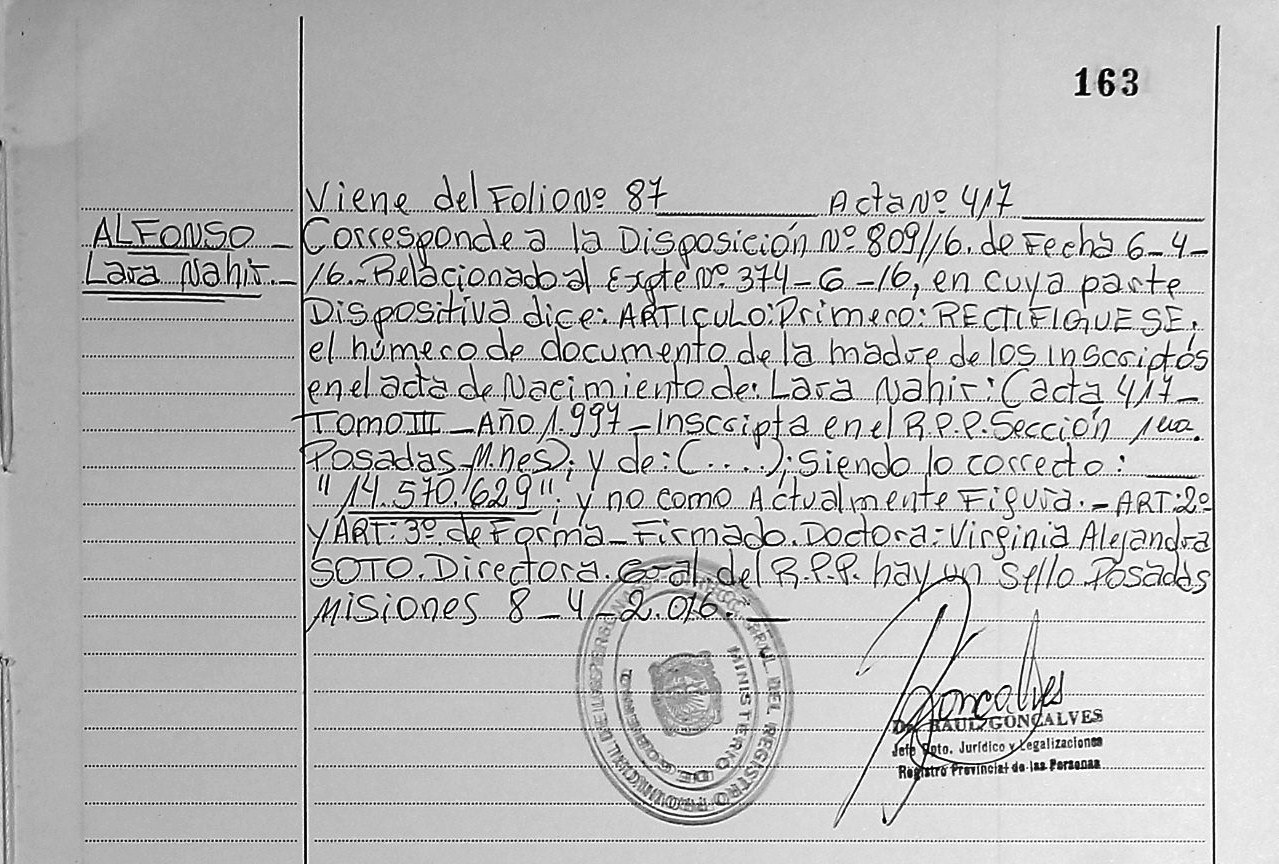 163
Viene del Folio Nº 87 Acta Nº 417
ALFONSO
Lara Nahir.-
Corresponde a la Disposición Nº 809//6. de Fecha 6-4-
/6. Relacionado al Expte Nº 374-G-16, en cuya parte
Dispositiva dice: ARTICULO: Primero: RECTIFIQUESE,
el número de documento de la madre de los Inscriptos
en el acta de Nacimiento de: Lara Nahir: (acta 417-
TOMO III - Año 1.997 - Inscripta en el R.P.P. Sección 1era.
Posadas-M.nes); y de: (....); siendo lo correcto:
"14.570.629"; y no como Actualmente Figura.- ART: 2º
y ART: 3º de Forma - Firmado. Doctora: Virginia Alejandra
SOTO. Directora. Gral. del R.P.P. hay un sello Posadas
Misiones 8-4-2.016.
MINISTERIO DE GOBIERNO
Goncalves
Dr. RAUL GONCALVES
Jefe Dpto. Jurídico y Legalizaciones
Registro Provincial de las Personas